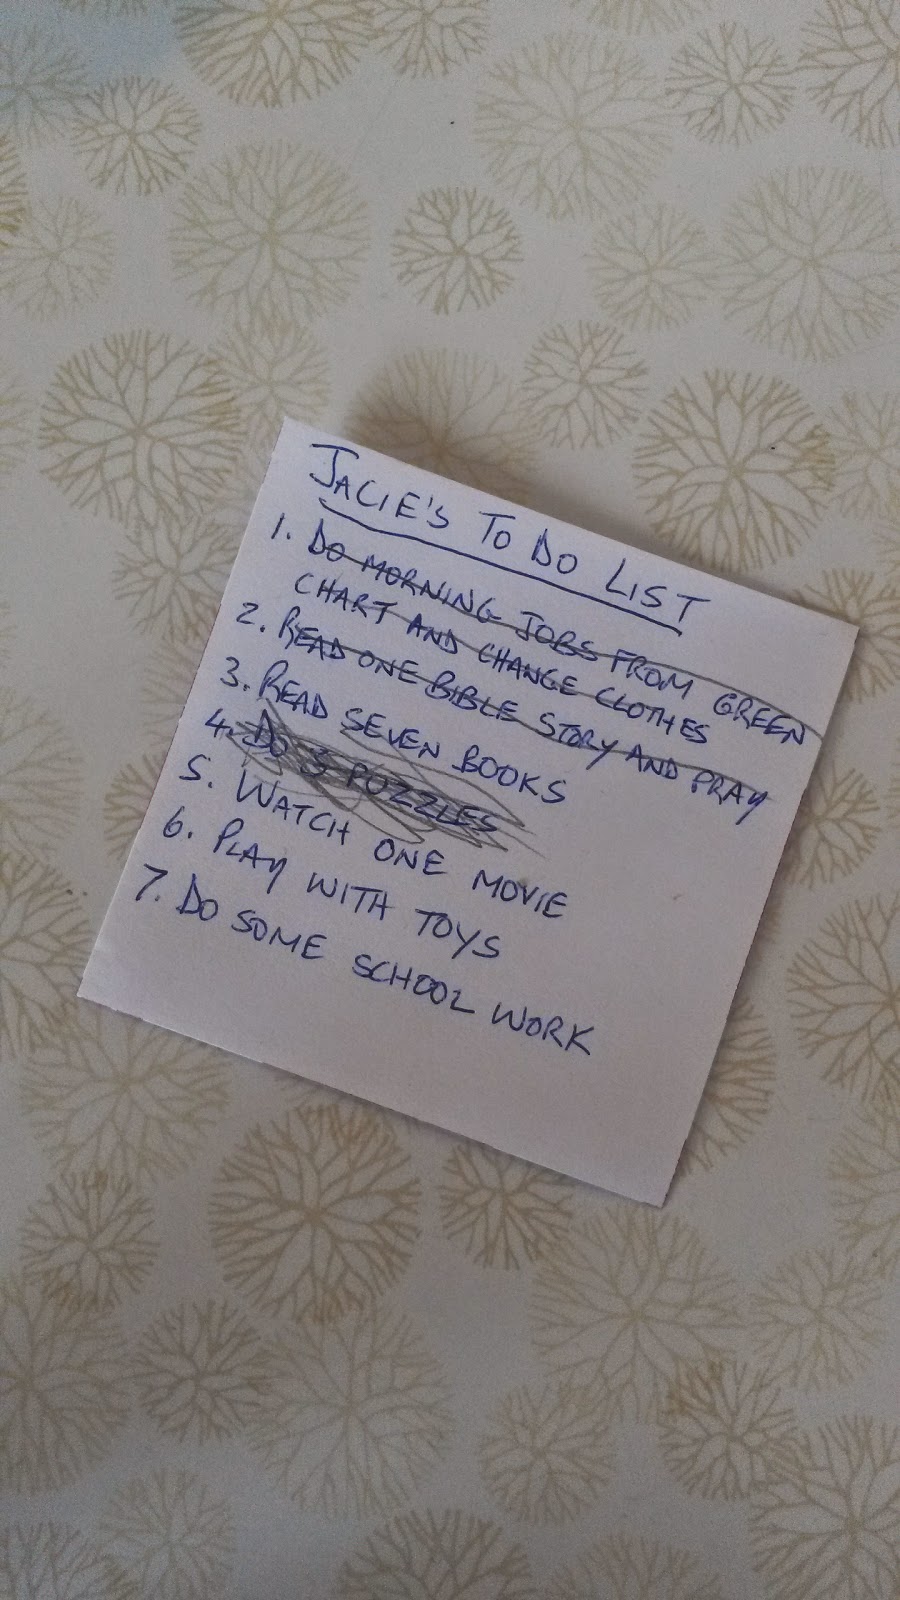 JACIE'S TO DO LIST
1. DO MORNING JOBS FROM GREEN
CHART AND CHANGE CLOTHES
2. READ ONE BIBLE STORY AND PRAY
3. READ SEVEN BOOKS
4. DO 3 PUZZLES
5. WATCH ONE MOVIE
6. PLAY WITH TOYS
7. DO SOME SCHOOL WORK